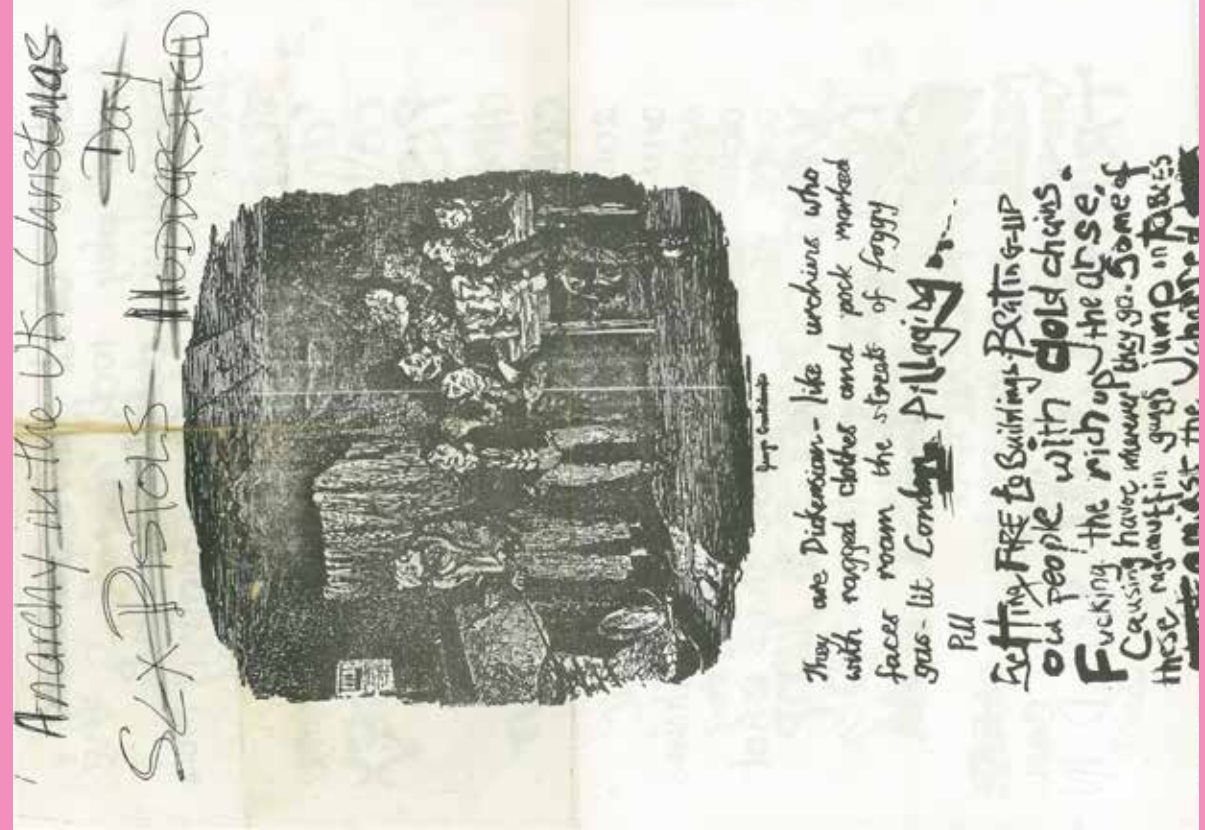 Anarchy in the UK Christmas
Day
SEX PISTOLS HUDDARSFIELD
George Cruikshank
They are Dickensian-like urchins who
with ragged clothes and pock marked
faces roam the streets of foggy
gas-lit London Pillaging
Pill
Setting FIRE to Buildings-Beating-UP
old people with Gold chains.
Fucking the rich up the arse.
Causing havoc wherever they go. Some of
these ragamuffin gangs jump on TABLES
amidst the charred